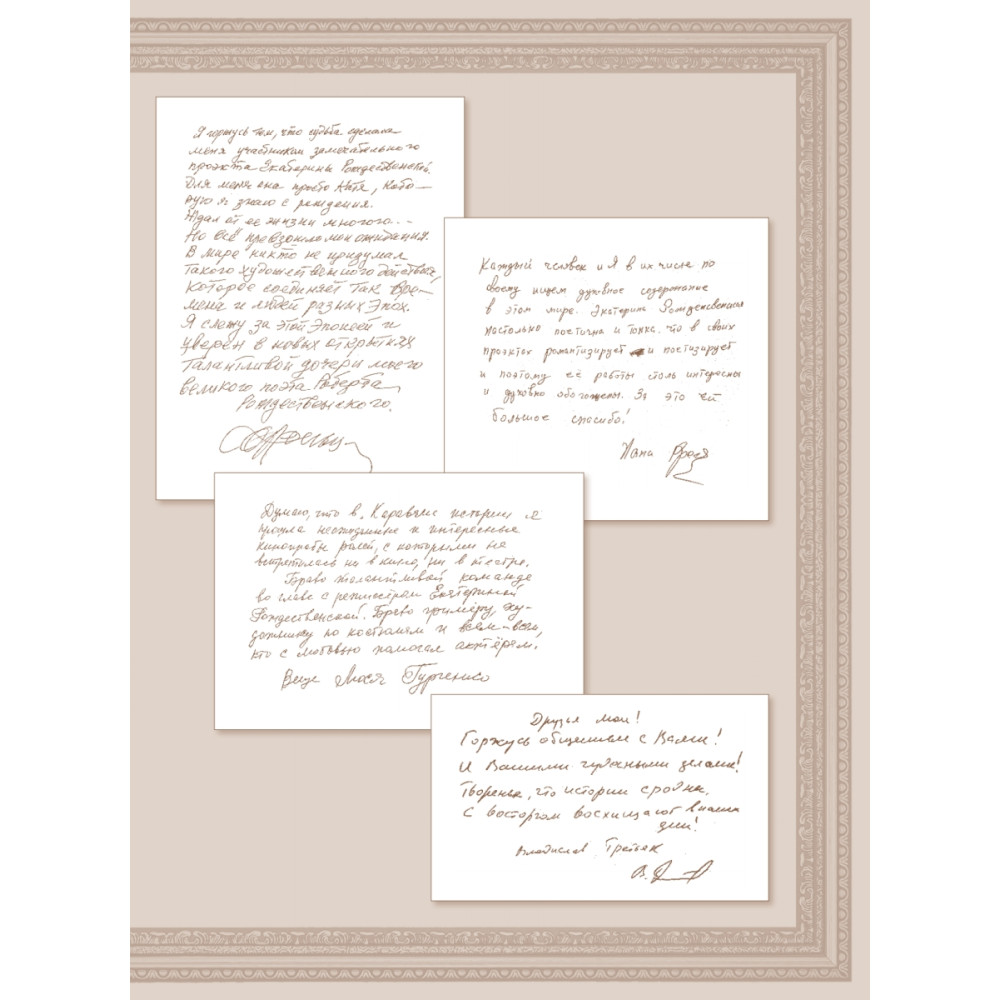 Я горжусь тем, что судьба сделала
меня участником замечательного
проэкта Екатерины Рождественской.
Для меня она просто Катя, кото-
рую я знаю с рождения.
Ждал от ее жизни многого...
Но всё превзошло мои ожидания.
В мире никто не придумал
такого художественного действия,
которое соединяет так вре-
мена и людей разных эпох.
Я слежу за этой эпопеей и
уверен в новых открытиях
талантливой дочери моего
великого поэта Роберта
Рождественского.
Каждый человек и я в их числе по
своему ищем духовное содержание
в этом мире. Екатерина Рождественская
настолько поэтична и тонка, что в своих
проэктах романтизирует и поэтизирует
и поэтому её работы столь интересны
и духовно обогощены. За это ей
большое спасибо!
Думаю, что в "Караван историй" я
прошла неожиданные и интересные
кинопробы ролей, с которыми не
встретилась ни в кино, ни в театре.
Браво талантливой команде
во главе с режиссёром Екатериной
Рождественской. Браво гримёру, ху-
дожнику по костюмам и всем-всем,
кто с любовью помогал актёрам.
Ваша Люся Гурченко
Друзья мои!
Горжусь общением с Вами!
И Вашими чудесными делами!
Творенья, что истории сродни,
С восторгом восхищают в наши
дни!
Владислав Третьяк